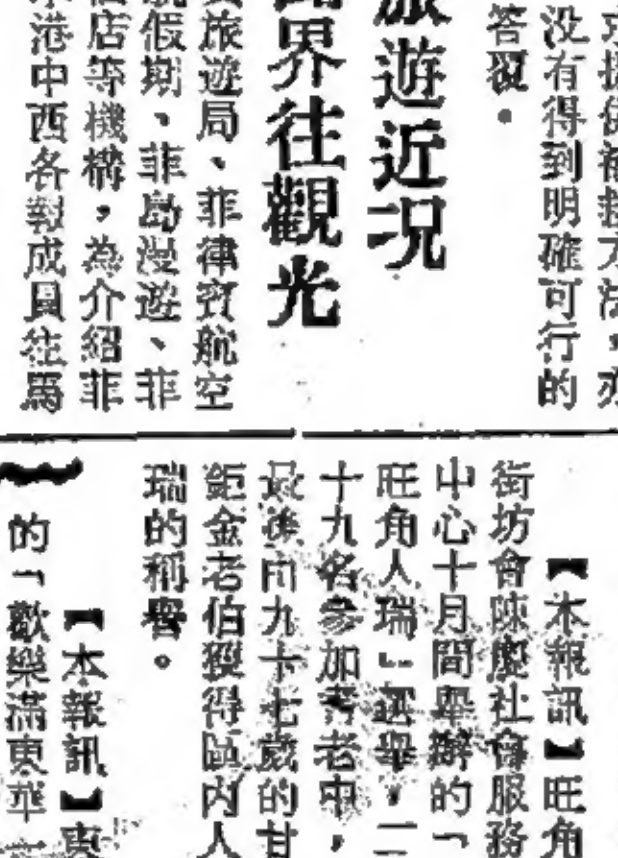 没有得到明確可行的
答覆。
旅遊近況
界往觀光
旅遊局、菲律賓航空
假期、菲島漫遊、菲
店等機構，為介紹菲
港中西各報成員往馬
【本報訊】旺角
街坊會陳慶社會服務
中心十月間舉辦的「
旺角人瑞」選舉，二
十九名參加耆老中，
最後由九十七歲的甘
鉅金老伯獲得區内人
瑞的稱譽。
【本報訊】東
的「歡樂滿東華